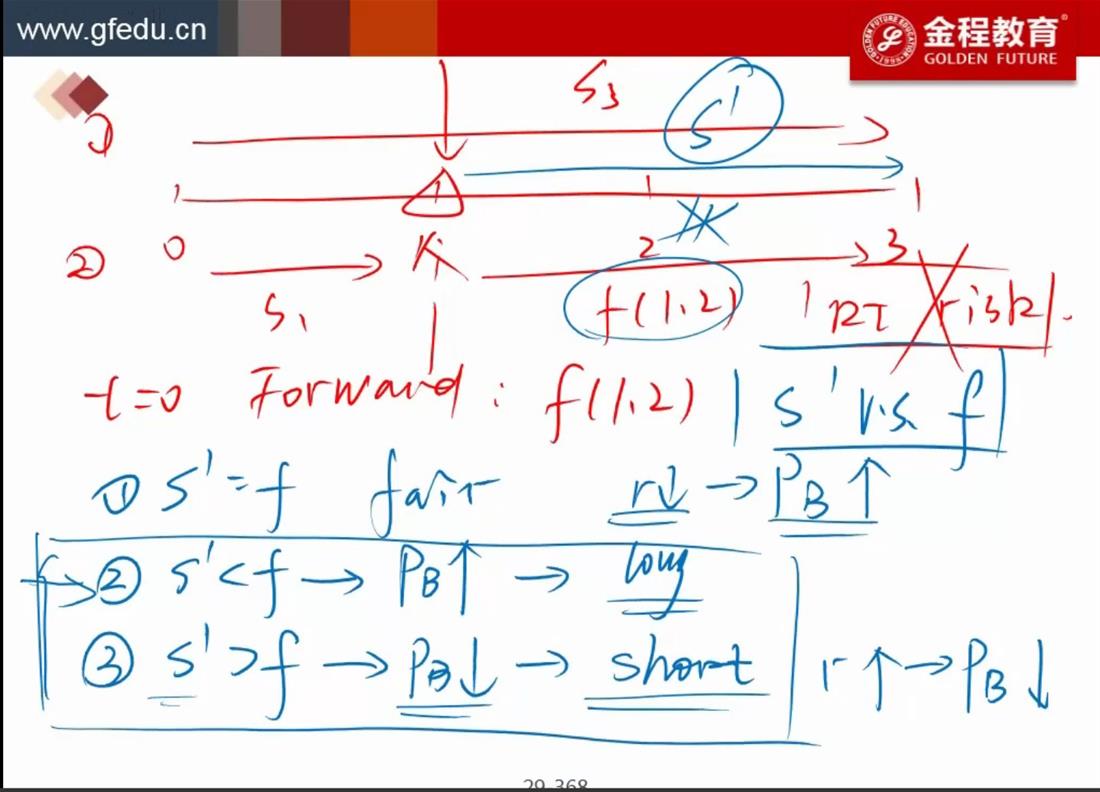 www.gfedu.cn
金程教育®
GOLDEN FUTURE
S₃ S'
①
1 1 1 1
② 0 2 3
S₁ f(1,2) risk
t=0 Forward : f(1,2) | S' v.s. f
① S'=f fair r↓ → P_B↑
② S'<f → P_B↑ → long
③ S'>f → P_B↓ → short r↑→P_B↓
29-368